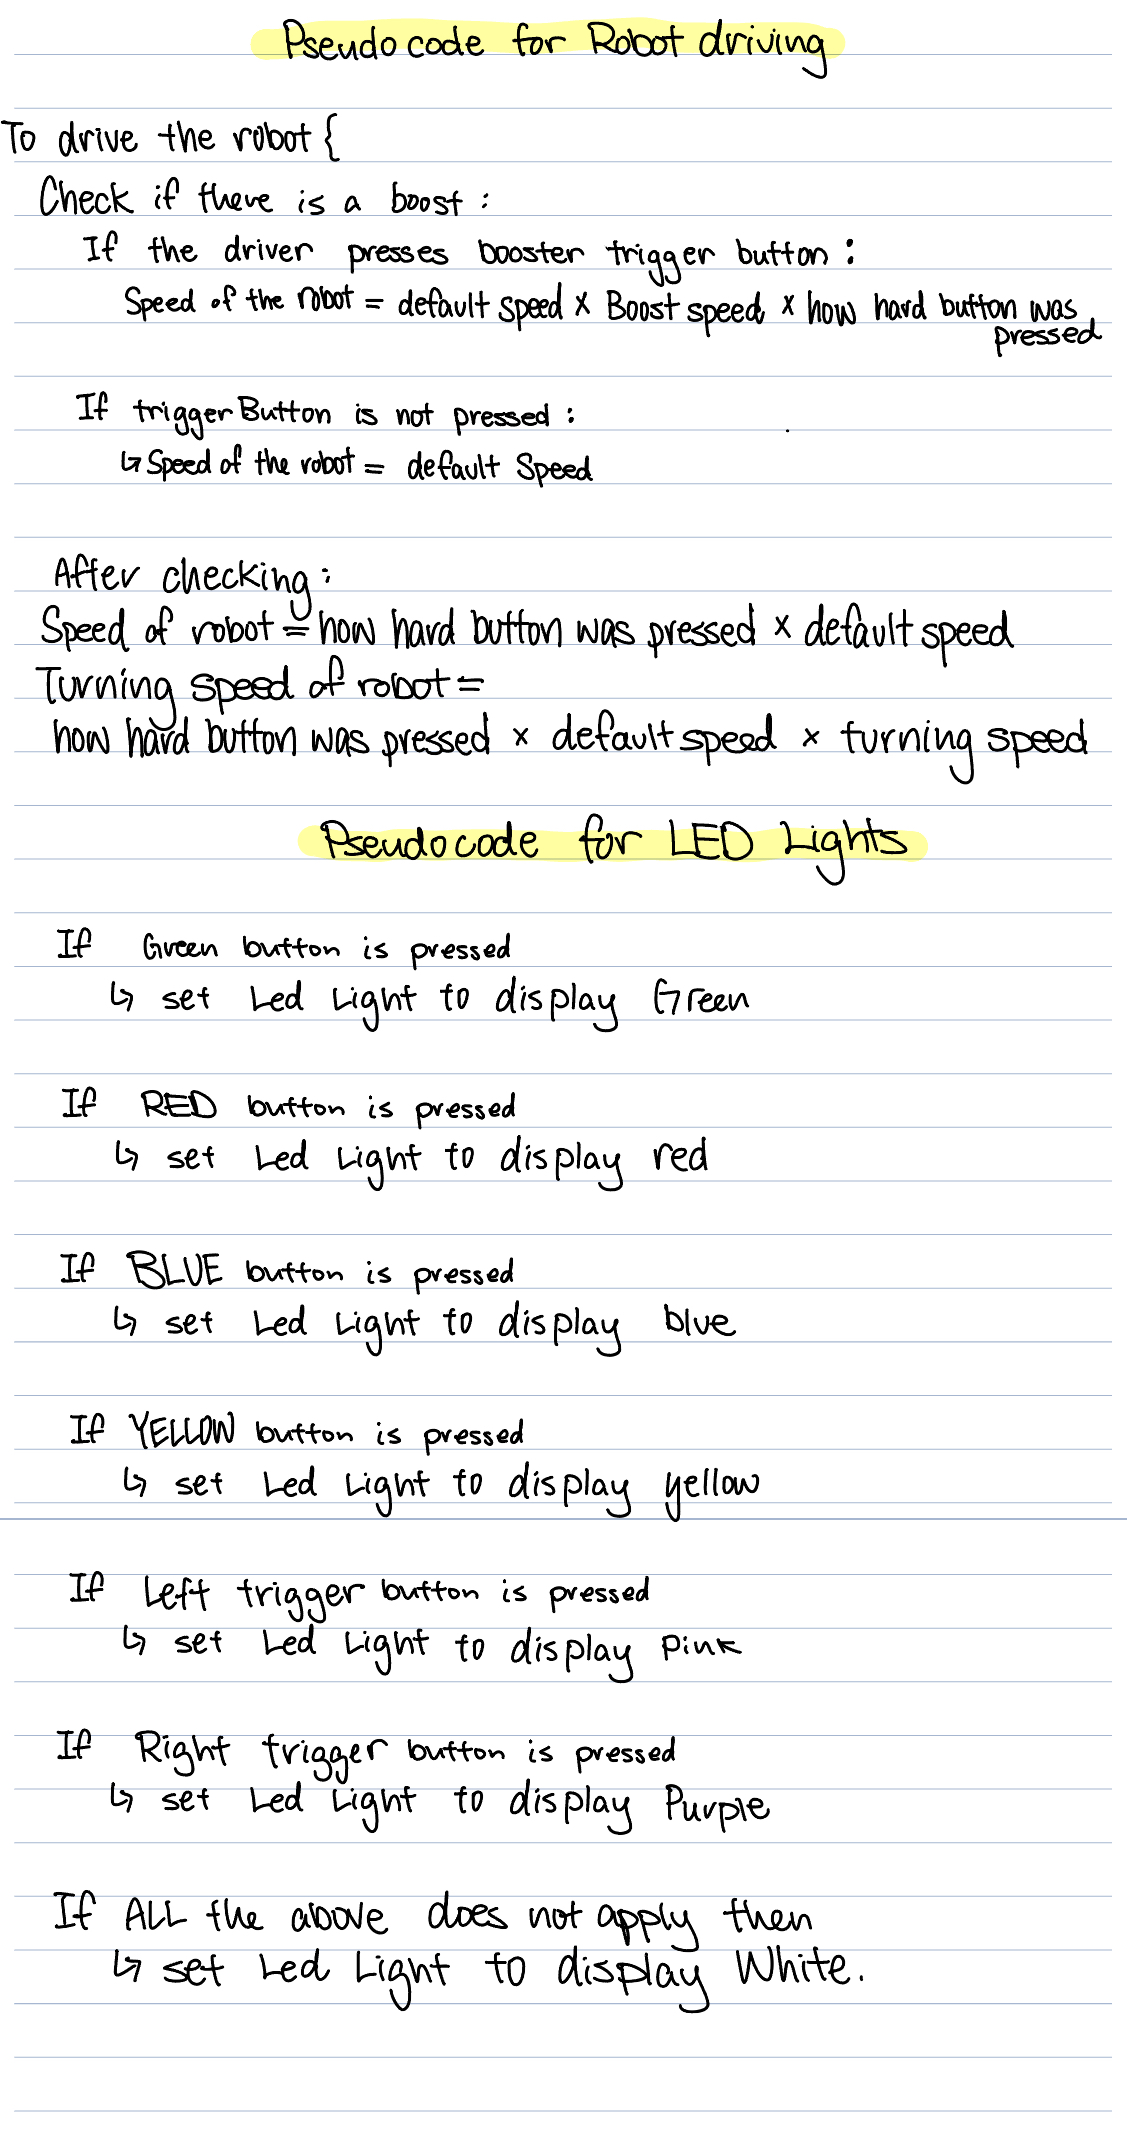 Pseudocode for Robot driving
To drive the robot {
Check if there is a boost :
If the driver presses booster trigger button :
Speed of the robot = default speed x Boost speed x how hard button was
pressed
If triggerButton is not pressed :
↳ Speed of the robot = default Speed
After checking :
Speed of robot = how hard button was pressed x default speed
Turning speed of robot =
how hard button was pressed x default speed x turning speed
Pseudocode for LED Lights
If Green button is pressed
↳ set Led Light to display Green
If RED button is pressed
↳ set Led Light to display red
If BLUE button is pressed
↳ set Led Light to display blue
If YELLOW button is pressed
↳ set Led Light to display yellow
If Left trigger button is pressed
↳ set Led Light to display Pink
If Right trigger button is pressed
↳ set Led Light to display Purple
If ALL the above does not apply then
↳ set Led Light to display White.